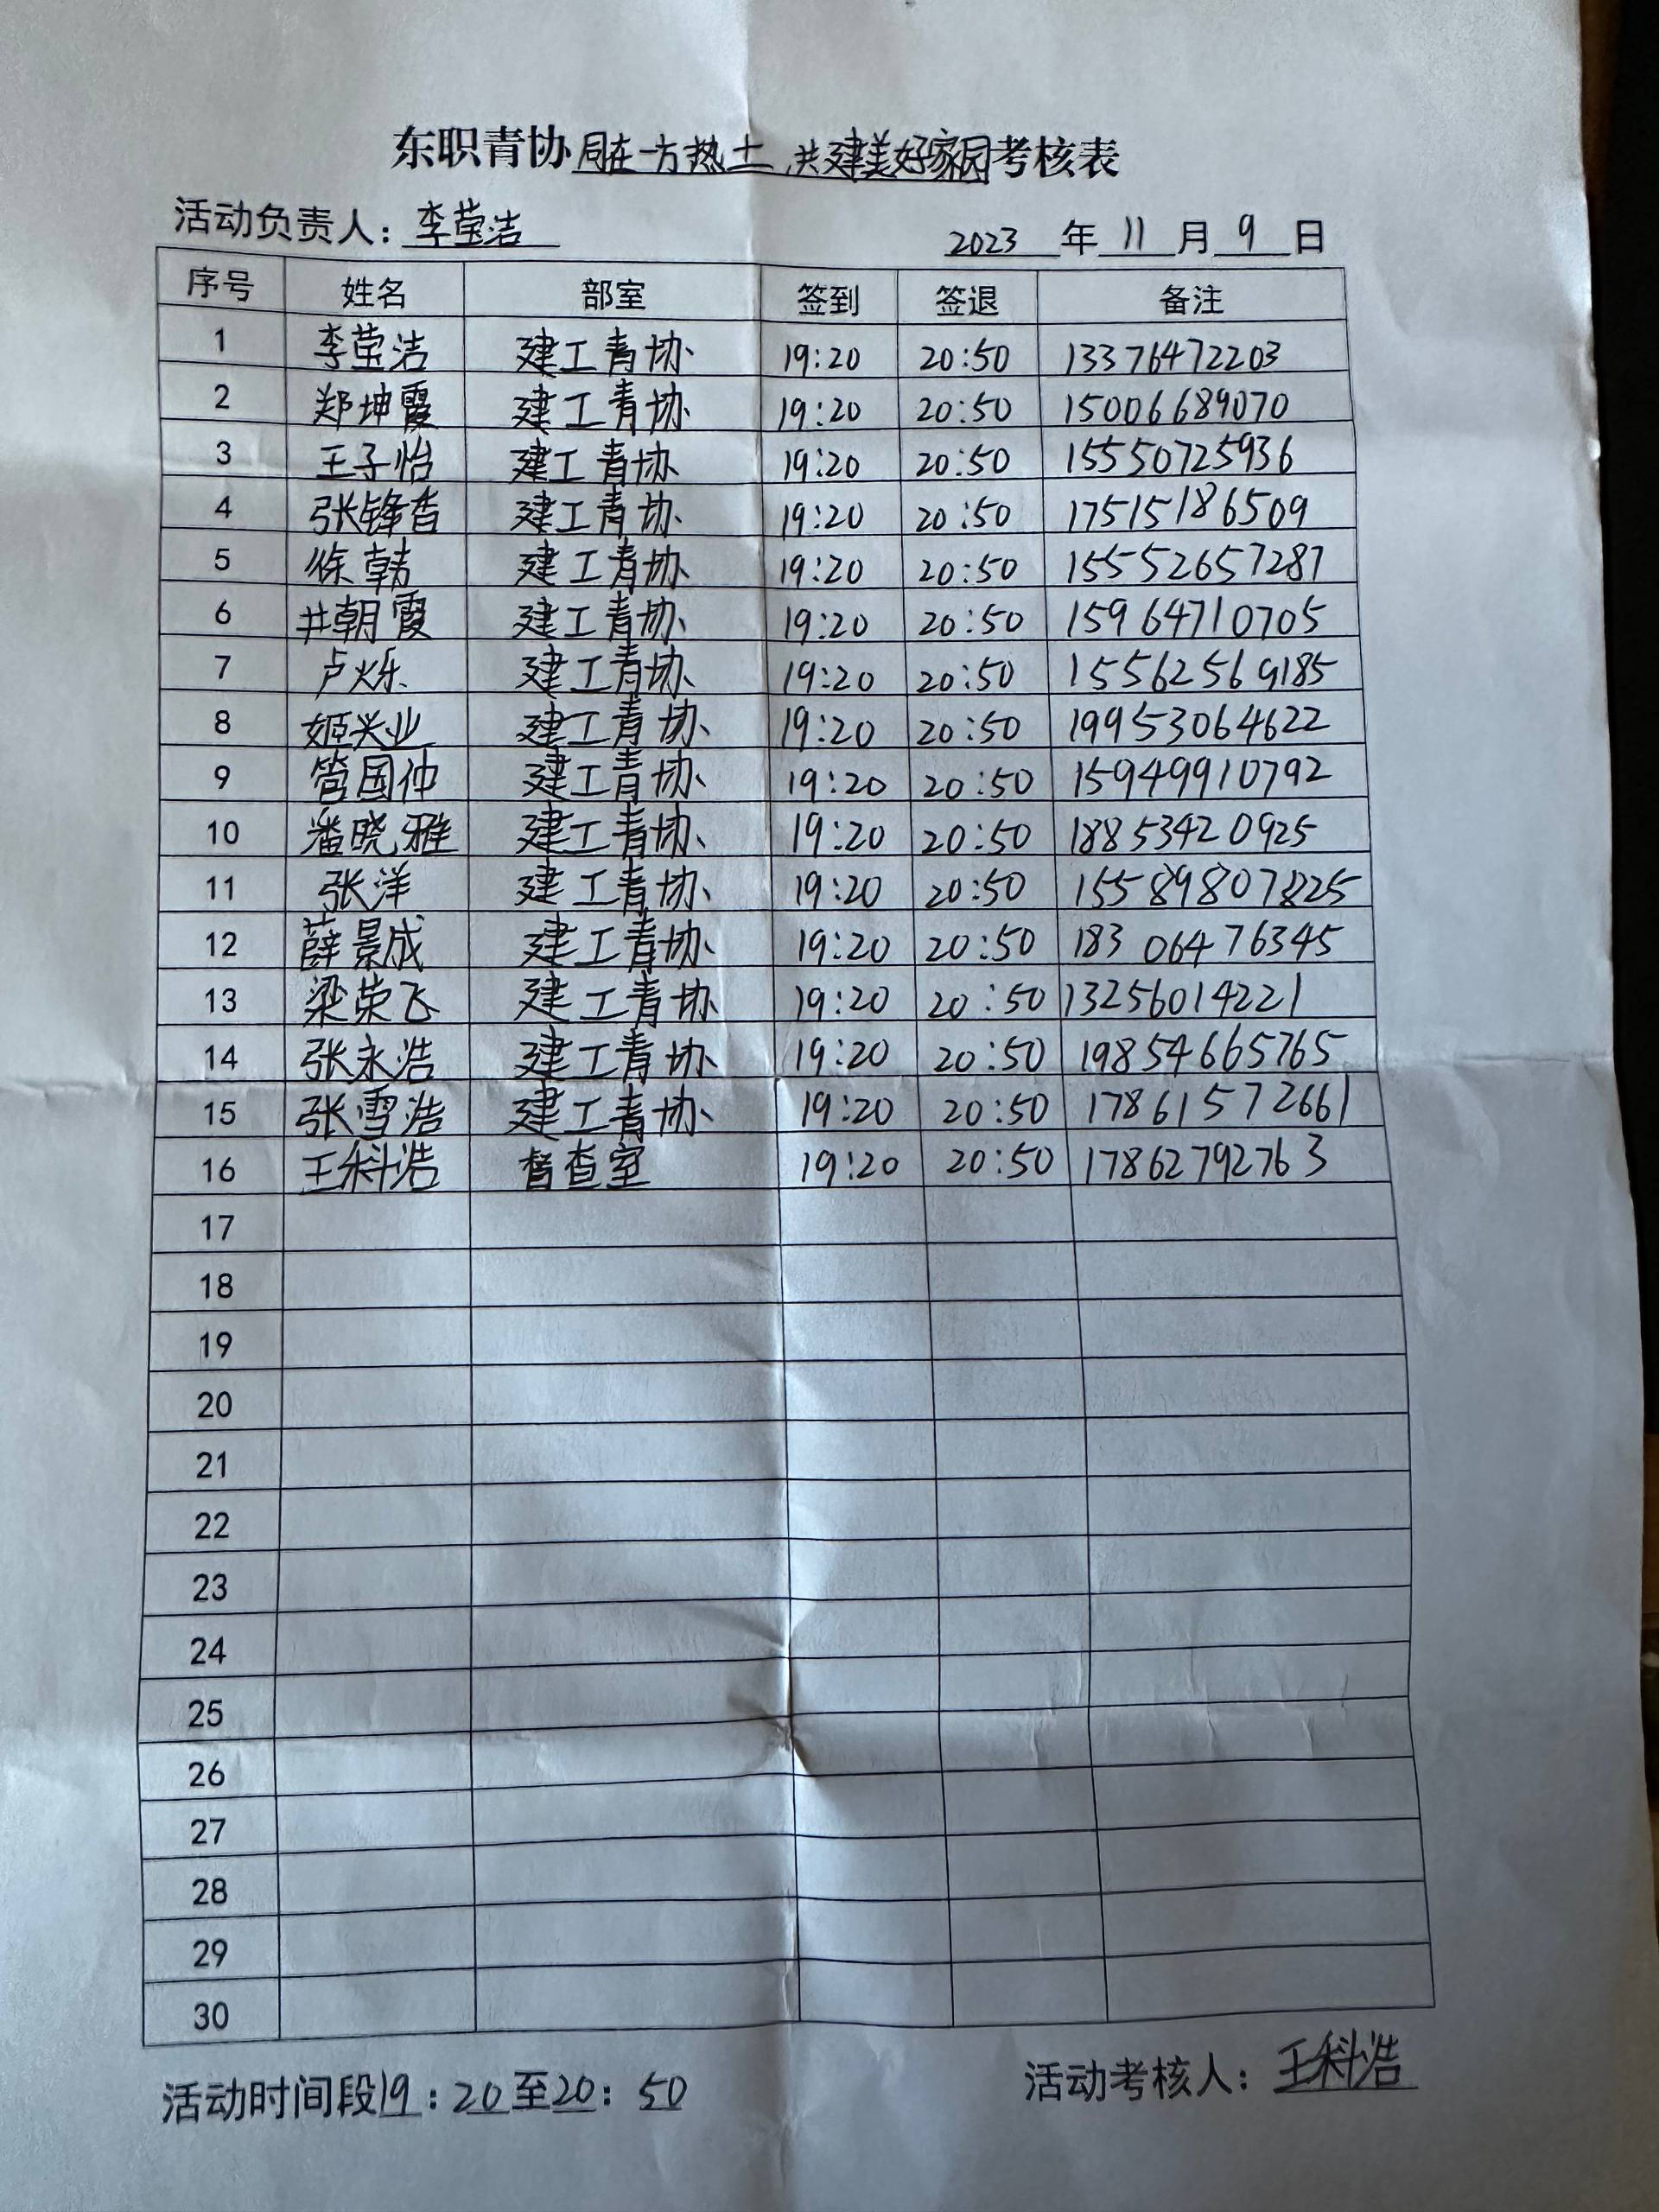 东职青协同在一方热土 共建美好家园考核表
活动负责人：李莹洁 2023年11月9日
序号 姓名 部室 签到 签退 备注
1 李莹洁 建工青协 19:20 20:50 13376472203
2 郑坤霞 建工青协 19:20 20:50 15006689070
3 王子怡 建工青协 19:20 20:50 15550725936
4 张锋香 建工青协 19:20 20:50 17515186509
5 徐韩 建工青协 19:20 20:50 15552657287
6 井朝霞 建工青协 19:20 20:50 15964710705
7 卢烁 建工青协 19:20 20:50 15562569185
8 姬兴业 建工青协 19:20 20:50 19953064622
9 管国仲 建工青协 19:20 20:50 15949910792
10 潘晓雅 建工青协 19:20 20:50 18853420925
11 张洋 建工青协 19:20 20:50
12 薛景成 建工青协 19:20 20:50 18306476345
13 梁荣飞 建工青协 19:20 20:50 13256014221
14 张永浩 建工青协 19:20 20:50 19854665765
15 张雪浩 建工青协 19:20 20:50 17861572661
16 王科浩 督查室 19:20 20:50 17862792763
17
18
19
20
21
22
23
24
25
26
27
28
29
30
活动时间段19：20至20：50 活动考核人：王科浩